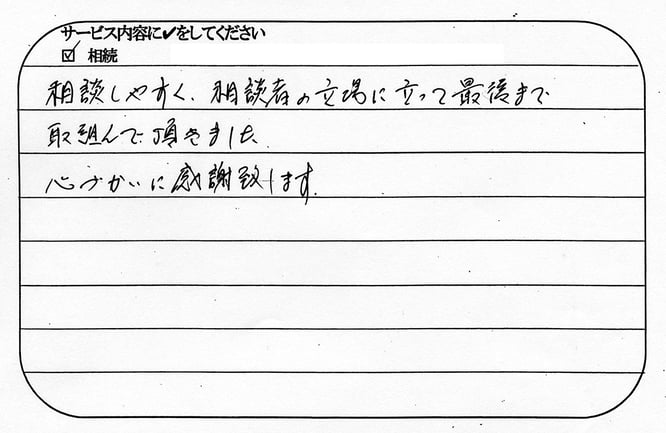 サービス内容に✔をしてください
☑ 相続
相談しやすく、相談者の立場に立って最後まで
取組んで頂きました。
心づかいに感謝致します。